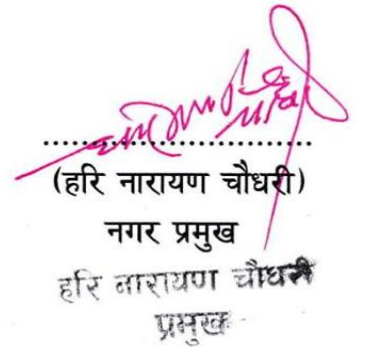 ....................................
(हरि नारायण चौधरी)
नगर प्रमुख
हरि नारायण चौधरी
प्रमुख